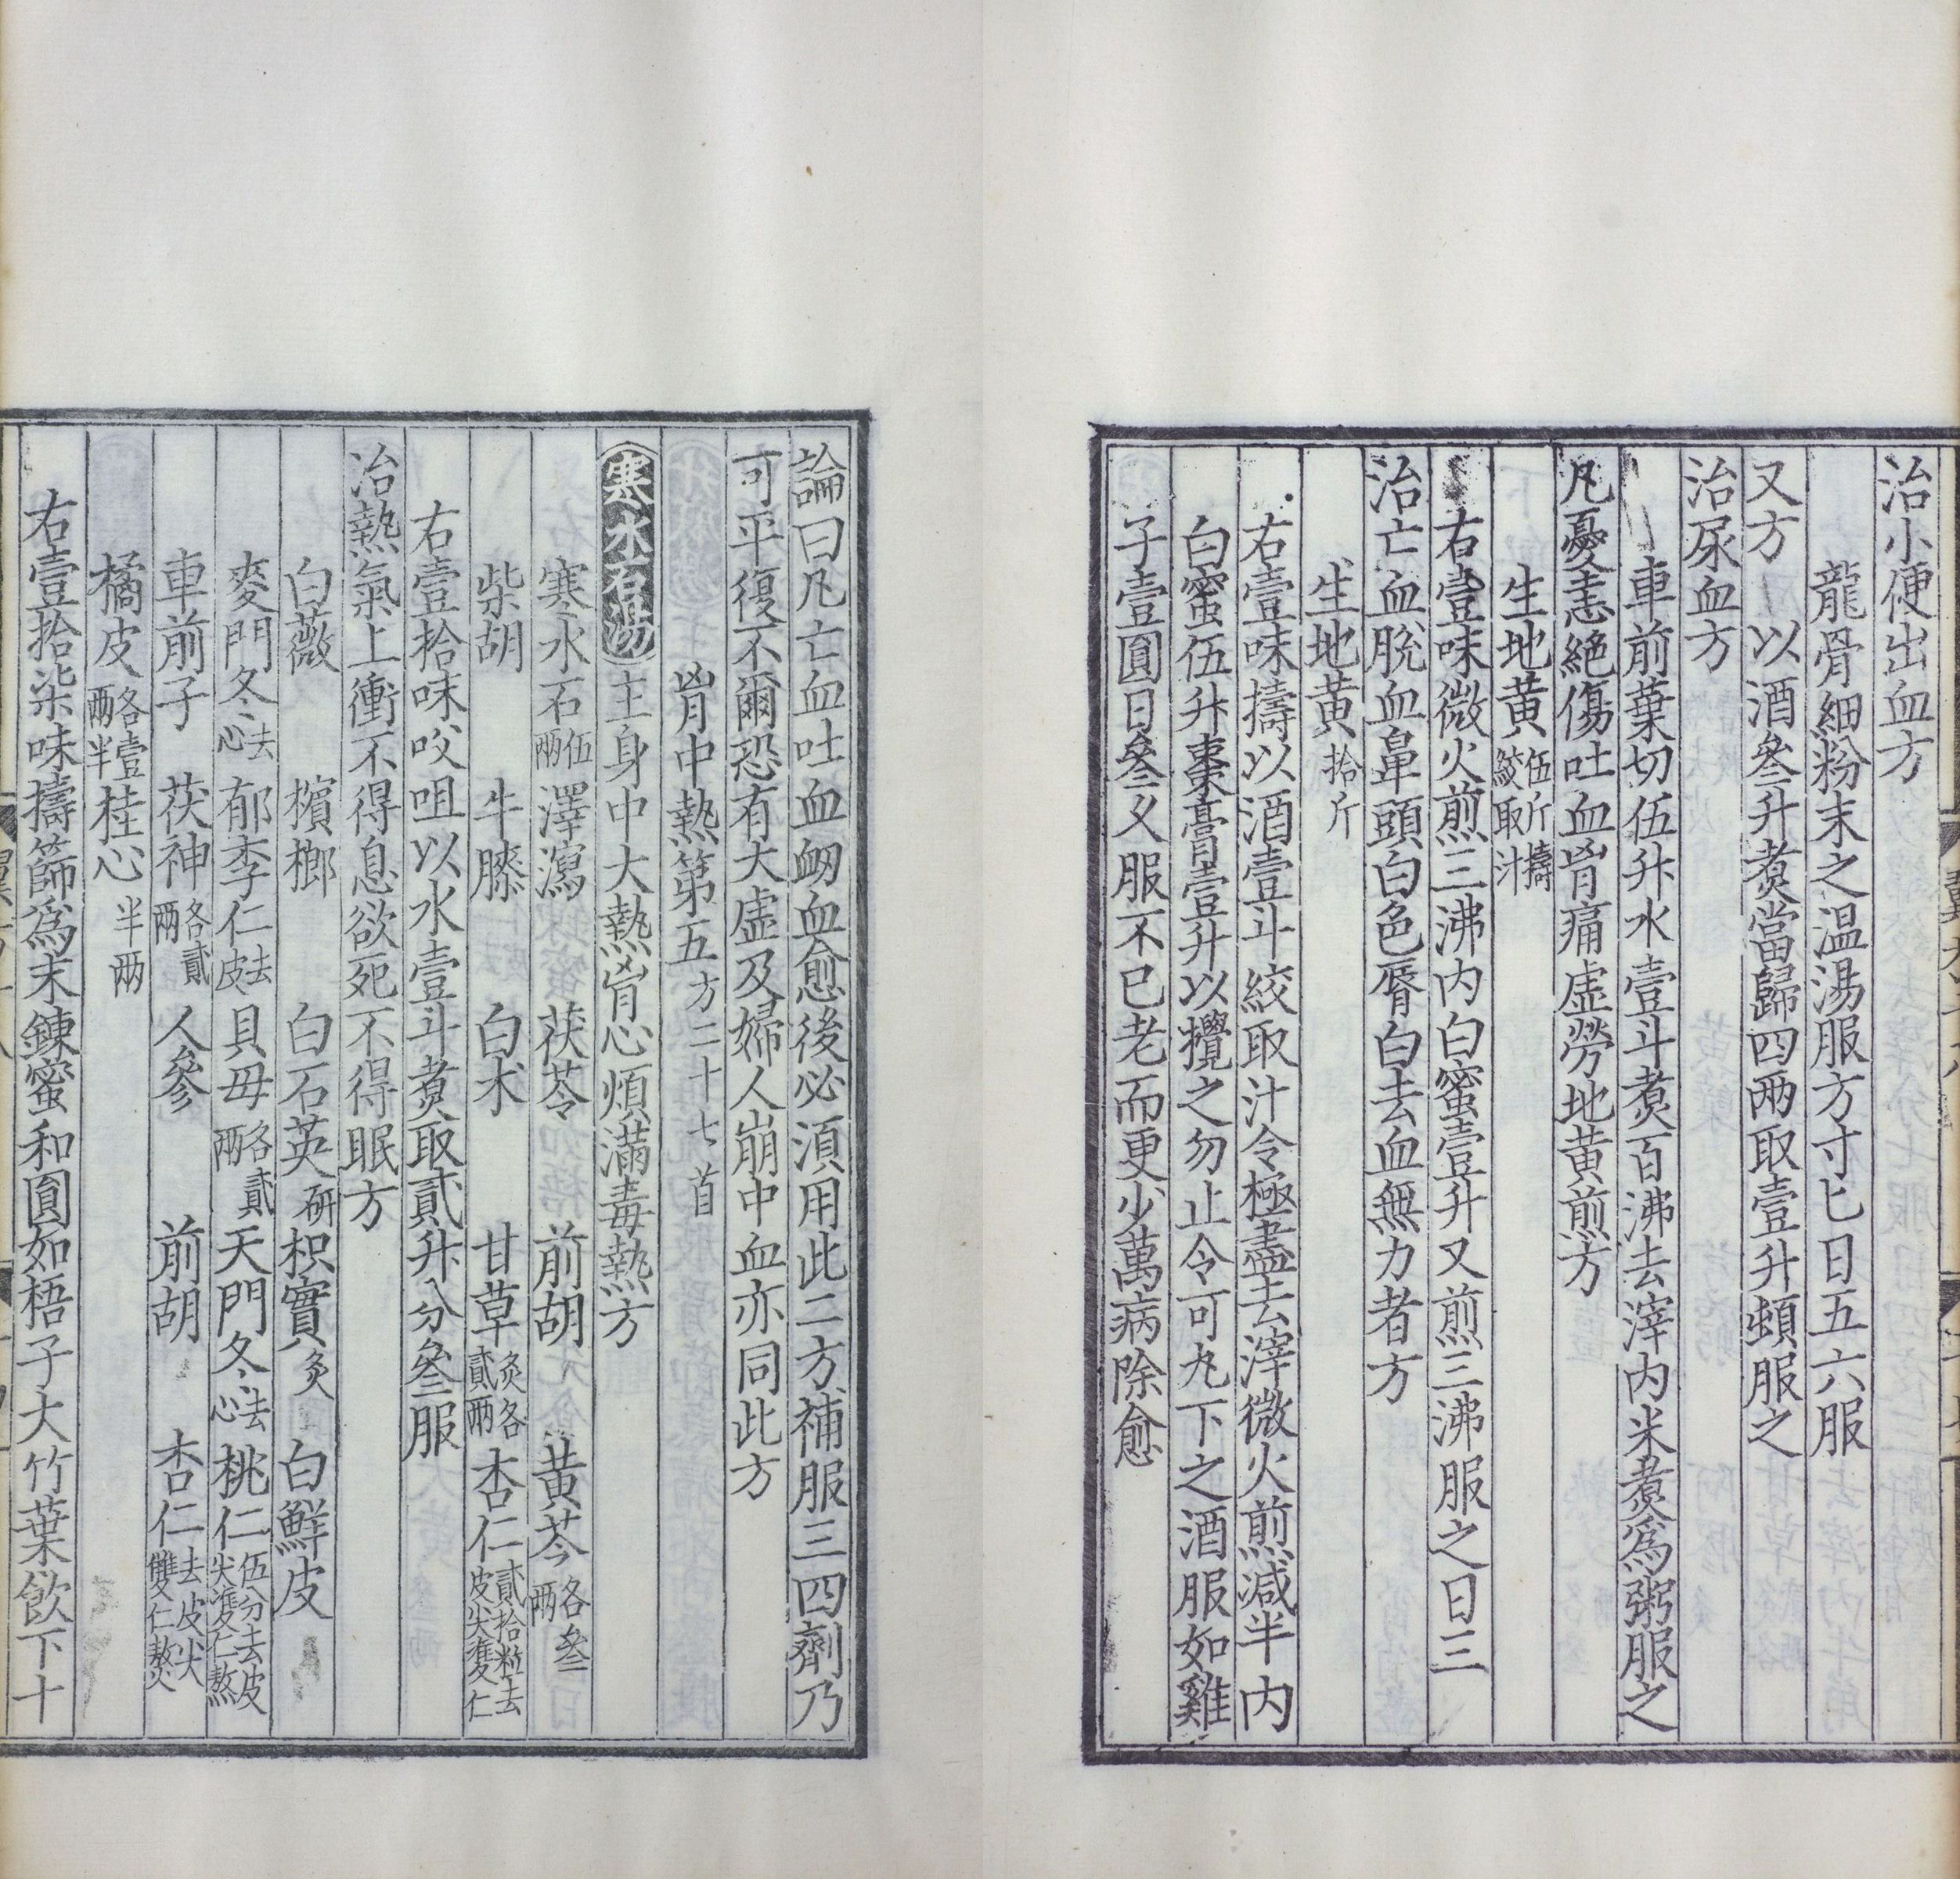 治小便出血方
龍骨細粉末之温湯服方寸匕日五六服
又方　以酒叄升煑當歸四两取壹升頓服之
治尿血方
車前葉切伍升水壹斗煑百沸去滓内米煑爲粥服之
凡憂恚絕傷吐血胷痛虚勞地黄煎方
生地黄伍斤擣絞取汁
右壹味微火煎三沸内白蜜壹升又煎三沸服之日三
治亡血脱血鼻頭白色脣白去血無力者方
生地黄拾斤
右壹味擣以酒壹斗絞取汁令極盡去滓微火煎減半内
白蜜伍升棗膏壹升以攪之勿止令可丸下之酒服如雞
子壹圓日叄乂服不已老而更少萬病除愈
論曰凡亡血吐血衂血愈後必須用此二方補服三四劑乃
可平復不爾恐有大虚及婦人崩中血亦同此方
胷中熱第五方二十七首
寒水石湯主身中大熱胷心煩滿毒熱方
寒水石伍两　澤瀉　茯苓　前胡　黄芩各叄两
柴胡　牛膝　白术　甘草炙各貳两　杏仁貳拾粒去皮尖䨇仁
右壹拾味㕮咀以水壹斗煑取貳升八分叄服
治熱氣上衝不得息欲死不得眠方
白薇　檳榔　白石英研　枳實炙　白鮮皮
麥門冬去心　郁李仁去皮　貝母各貳两　天門冬去心　桃仁伍分去皮尖䨇仁熬
車前子　茯神各貳两　人參　前胡　杏仁去皮尖雙仁熬
橘皮各壹两半　桂心半两
右壹拾柒味擣篩爲末鍊蜜和圓如梧子大竹葉飲下十